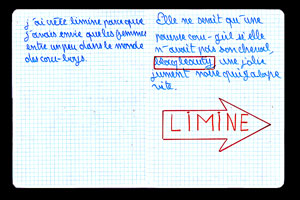 j'ai créé limine parce que
j'avais envie que les femmes
entre un peu dans le monde
des cow-boys.
Elle ne serait qu'une
pauvre cow-girl si elle
n'avait pas son cheval,
beauty, une jolie
jument noire qui galope
vite.
LIMINE